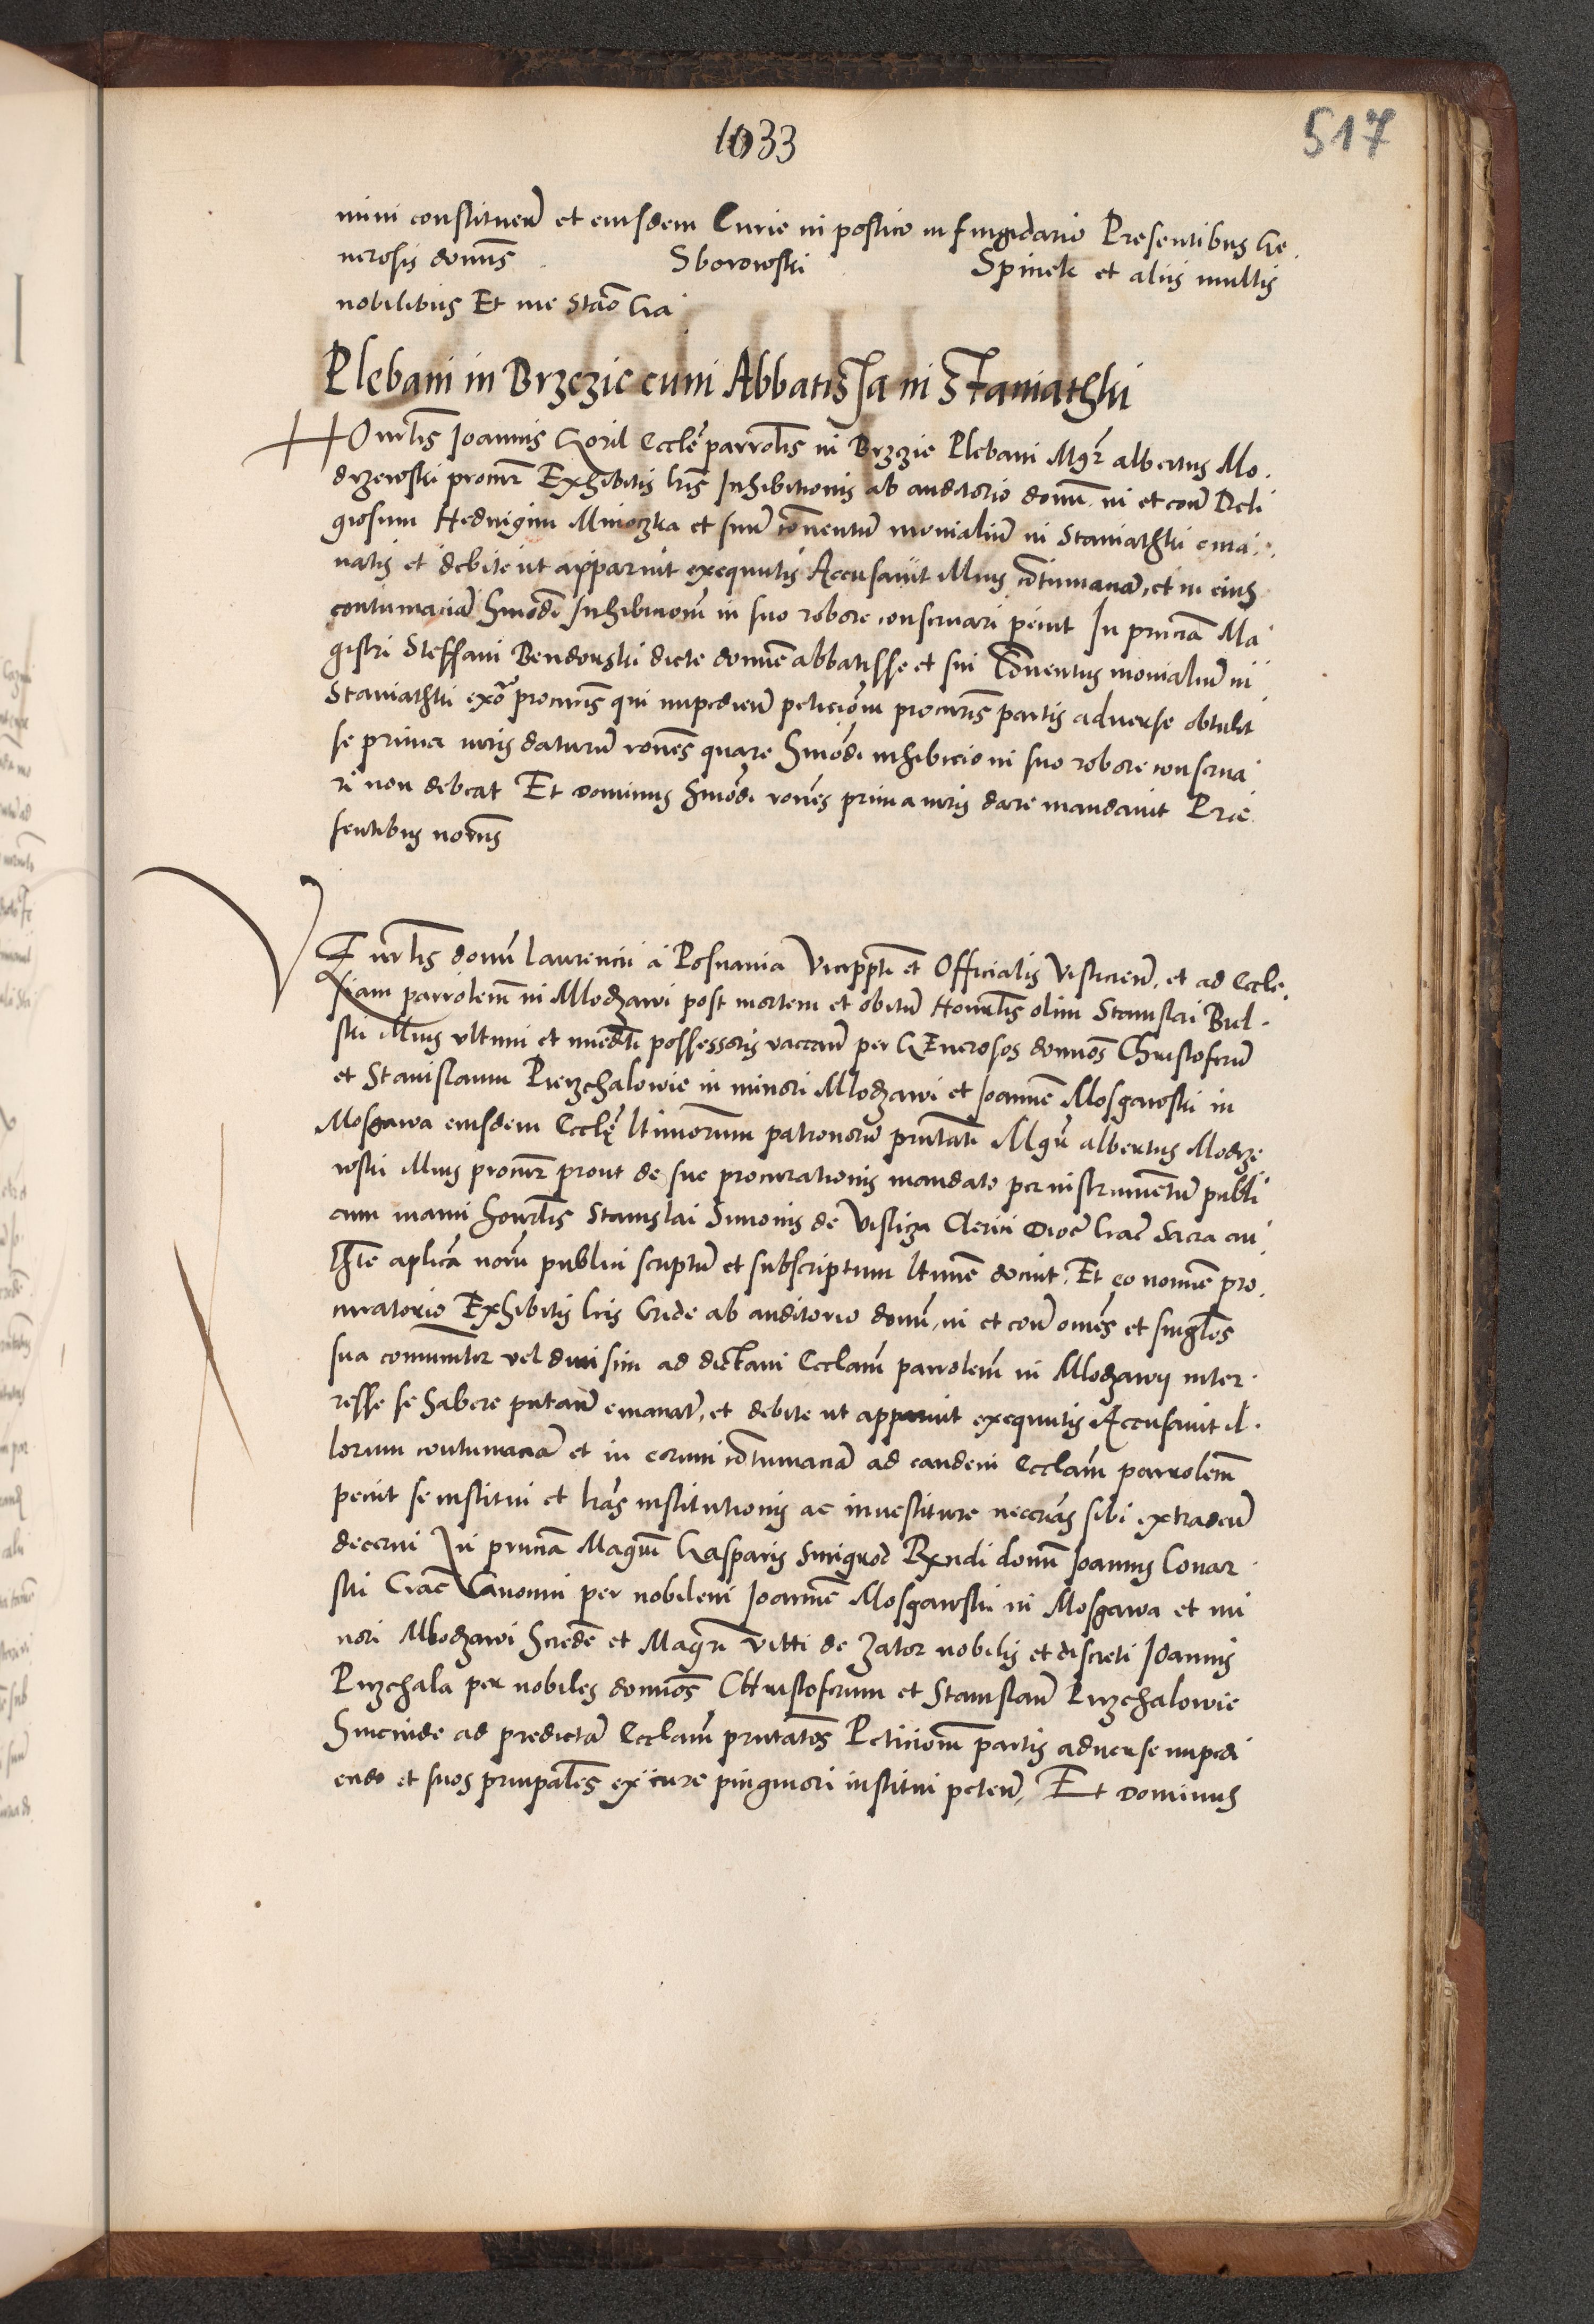 1033
517
mini constituen̄ et eiusdem Curie in postico in frigidario Presentibus Ge
nerosis domīs Sborowski Spinek et aliis multis
nobilibus Et me Stāo Gra
Plebani in Brzezie cum Abbatissa in Staniathki
Honorlis Joannis Goril Ecclē parrolis in Brzezie Plebani Mgr albertus Mo
drzewski procur Exhibitis lris Inhibitionis ab auditorio domī ni et con̄ Reli
giosam Hedvigim Mnioczka et suū conventū monialiū in Staniathki ema
natis et debite ut apparuit exequutis Accusavit Illius contumaciā, et in eius
contumaciā hmōdi Inhibicionem in suo robore conservari petiit In pnciā Ma
gistri Steffani Bendonski dicte domīe abbatisse et sui Conventus monialiū in
Staniathki exo procuris qui impediens peticionem procuris partis adverse obtulit
se prima iuris daturū rones quare hmōdi inhibicio in suo robore conserva
ri non debeat Et dominus hmōdi rones prima iuris dare mandavit Pre
sentibus noriis
Venerlis domī Laurencii a Posnania Vicepptī et Officialis Visliciens, et ad Eccle
siam parrolem in Mlodzawi post mortem et obitū Honorlis olim Stanislai Bil
ski Illius ultimi et imedti possessoris vacan̄ per Generosos domīos Christoferū
et Stanislaum Pierzchalowie in minori Mlodzawi et Joannē Mosgawski in
Mosgawa eiusdem Ecclē ltimorum patronorū pntati Mgr albertus Modrze
wski Illius procur prout de sue procurationis mandato per instrumentū publi
cum manu honorlis Stanislai Simonis de Vislicza Clerici dioc Crac Sacra au
thte aplica norii publici scriptū et subscriptum ltime docuit, Et eo nomīe pro
curatorio Exhibitis lris Cride ab auditorio domī, ni et con̄ omes et singlos
sua comuniter vel divisim ad dictam Ecclam parrolem in Mlodzawij inter
resse se habere putan̄ emanat, et debite ut apparuit exequutis Accusavit il
lorum contumaciā et in eorum contumaciā ad eandem Ecclam parrolem
petiit se institui et lras institutionis ac investiture neccrias sibi extraden̄
decerni In pnciā Magrī Gasparis Smigrod Rxndi domī Joannis Conar
ski Crac Canonici per nobilem Joannē Mosgawski in Mosgawa et mi
nori Mlodzawi heredē et Magrī Vitti de Zator nobilis et discreti Joannis
Pirzchala per nobiles domīos Christoferum et Stanislaū Pirzchalowie
hincinde ad predictā Ecclam pntatos Peticionem partis adverse impedi
endo et suos principales ex iure pinguiori institui peten̄, Et dominus